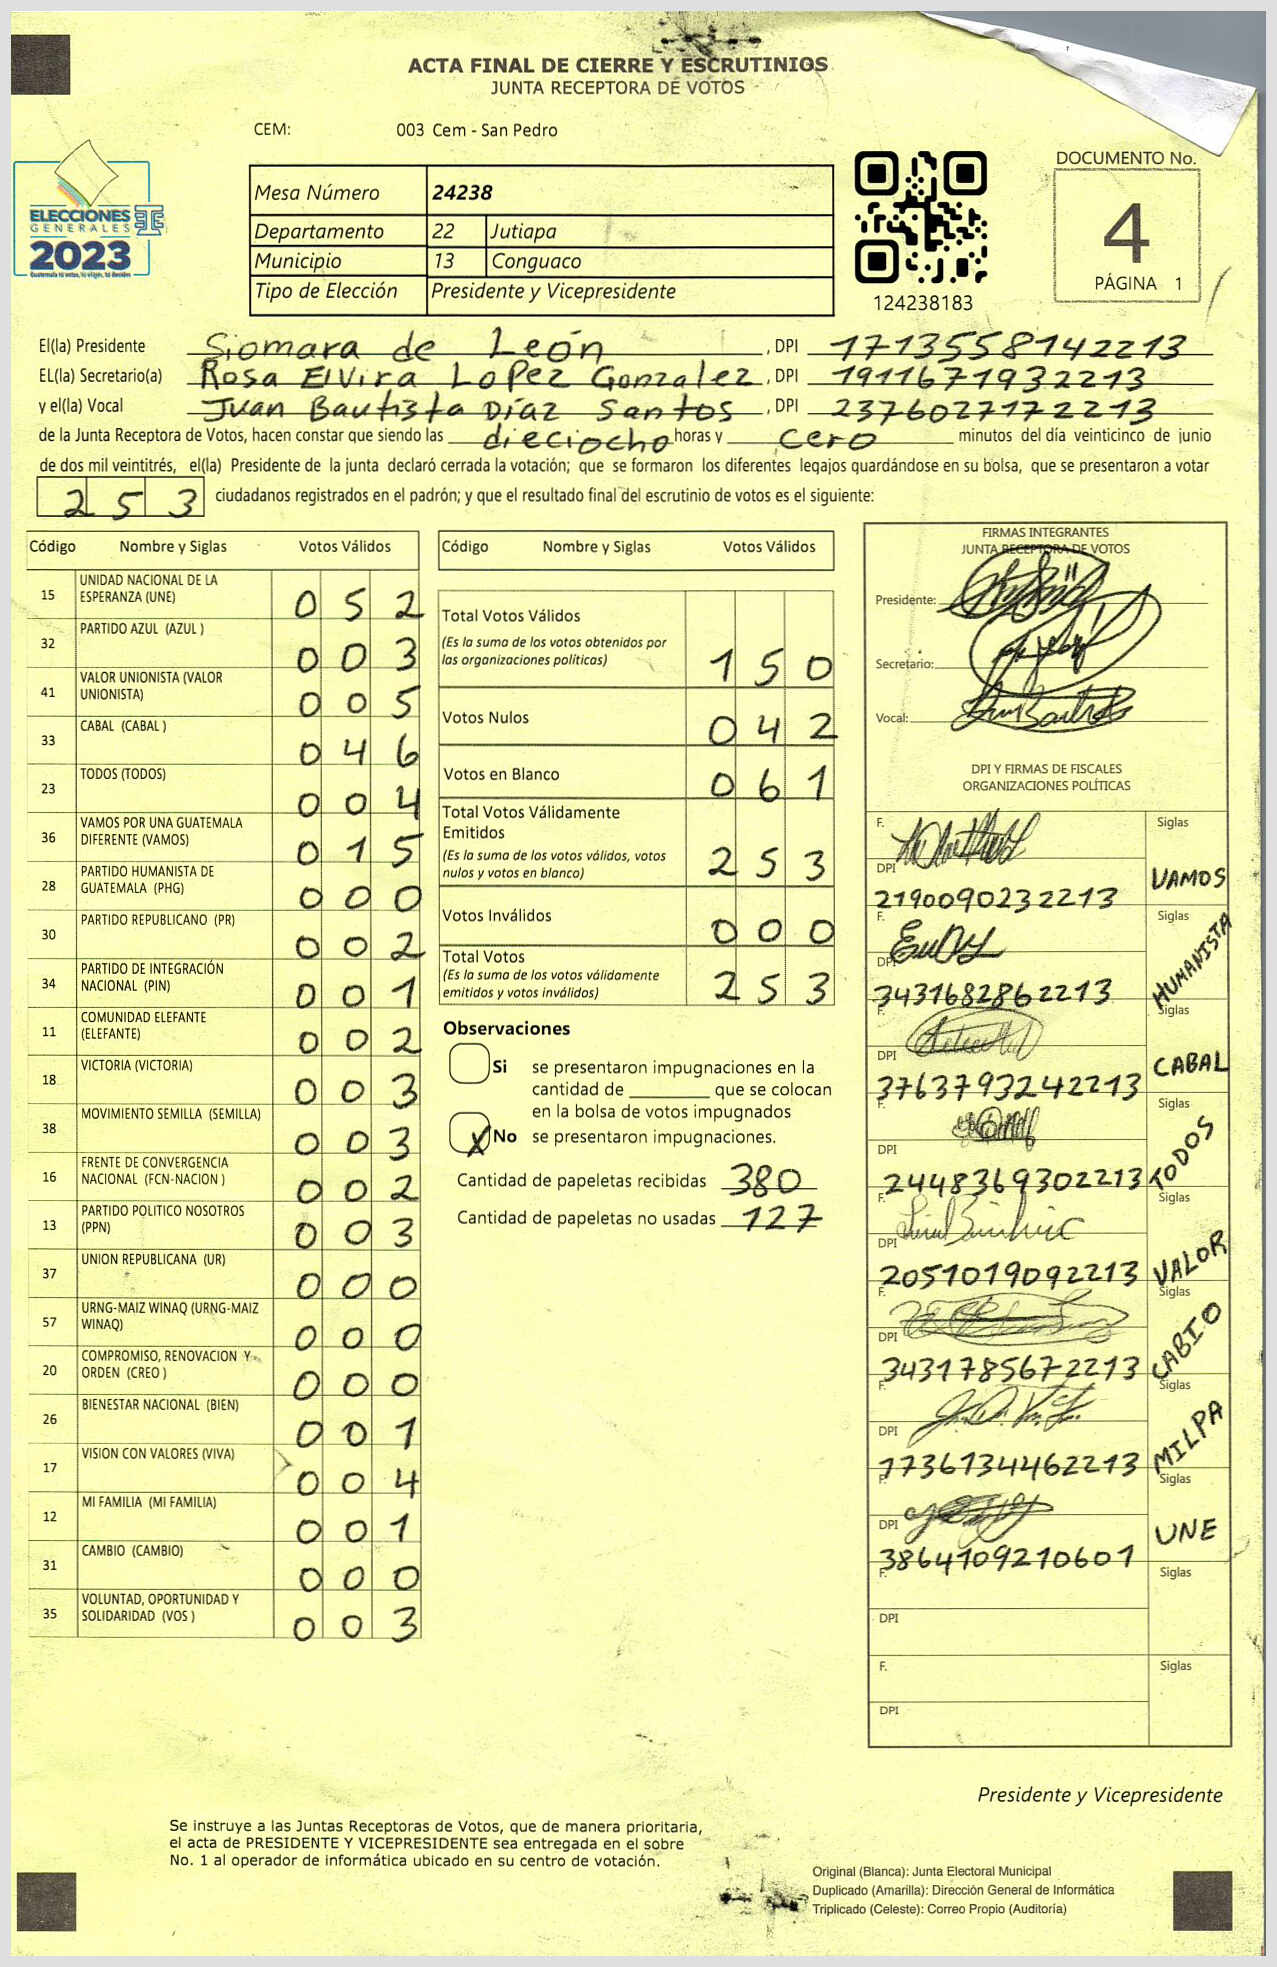 ACTA FINAL DE CIERRE Y ESCRUTINIOS
JUNTA RECEPTORA DE VOTOS
CEM: 003 Cem - San Pedro
ELECCIONES
GENERALES
2023
Mesa Número 24238
Departamento 22 Jutiapa
Municipio 13 Conguaco
Tipo de Elección Presidente y Vicepresidente
124238183
DOCUMENTO No.
4
PÁGINA 1
El(la) Presidente Siomara de León, DPI 1713558142213
EL(la) Secretario(a) Rosa Elvira Lopez Gonzalez, DPI 1911671932213
y el(la) Vocal Juan Bautista Díaz Santos, DPI 2376027172213
de la Junta Receptora de Votos, hacen constar que siendo las dieciocho horas y cero minutos del día veinticinco de junio
de dos mil veintitrés, el(la) Presidente de la junta declaró cerrada la votación; que se formaron los diferentes legajos quardándose en su bolsa, que se presentaron a votar
253 ciudadanos registrados en el padrón; y que el resultado final del escrutinio de votos es el siguiente:
Código Nombre y Siglas Votos Válidos
15 UNIDAD NACIONAL DE LA ESPERANZA (UNE) 052
32 PARTIDO AZUL (AZUL ) 003
41 VALOR UNIONISTA (VALOR UNIONISTA) 005
33 CABAL (CABAL ) 046
23 TODOS (TODOS) 004
36 VAMOS POR UNA GUATEMALA DIFERENTE (VAMOS) 015
28 PARTIDO HUMANISTA DE GUATEMALA (PHG) 000
30 PARTIDO REPUBLICANO (PR) 002
34 PARTIDO DE INTEGRACIÓN NACIONAL (PIN) 001
11 COMUNIDAD ELEFANTE (ELEFANTE) 002
18 VICTORIA (VICTORIA) 003
38 MOVIMIENTO SEMILLA (SEMILLA) 003
16 FRENTE DE CONVERGENCIA NACIONAL (FCN-NACION ) 002
13 PARTIDO POLITICO NOSOTROS (PPN) 003
37 UNION REPUBLICANA (UR) 000
57 URNG-MAIZ WINAQ (URNG-MAIZ WINAQ) 000
20 COMPROMISO, RENOVACION Y ORDEN (CREO ) 000
26 BIENESTAR NACIONAL (BIEN) 001
17 VISION CON VALORES (VIVA) 004
12 MI FAMILIA (MI FAMILIA) 001
31 CAMBIO (CAMBIO) 000
35 VOLUNTAD, OPORTUNIDAD Y SOLIDARIDAD (VOS ) 003
Código Nombre y Siglas Votos Válidos
Total Votos Válidos
(Es la suma de los votos obtenidos por
las organizaciones políticas) 150
Votos Nulos 042
Votos en Blanco 061
Total Votos Válidamente
Emitidos
(Es la suma de los votos válidos, votos
nulos y votos en blanco) 253
Votos Inválidos 000
Total Votos
(Es la suma de los votos válidamente
emitidos y votos inválidos) 253
Observaciones
Si se presentaron impugnaciones en la
cantidad de ________ que se colocan
en la bolsa de votos impugnados
X No se presentaron impugnaciones.
Cantidad de papeletas recibidas 380
Cantidad de papeletas no usadas 127
FIRMAS INTEGRANTES
JUNTA RECEPTORA DE VOTOS
Presidente:
Secretario:
Vocal:
DPI Y FIRMAS DE FISCALES
ORGANIZACIONES POLÍTICAS
F. Siglas
DPI 2190090232213 VAMOS
F. Siglas
DPI 3431682862213 HUMANISTA
F. Siglas
DPI 3763793242213 CABAL
F. Siglas
DPI 2448369302213 TODOS
F. Siglas
DPI 2051019092213 VALOR
F. Siglas
DPI 3431785672213 CABIO
F. Siglas
DPI 1736134462213 MILPA
F. Siglas
DPI 3864109210601 UNE
F. Siglas
DPI
F. Siglas
DPI
Presidente y Vicepresidente
Se instruye a las Juntas Receptoras de Votos, que de manera prioritaria,
el acta de PRESIDENTE Y VICEPRESIDENTE sea entregada en el sobre
No. 1 al operador de informática ubicado en su centro de votación.
Original (Blanca): Junta Electoral Municipal
Duplicado (Amarilla): Dirección General de Informática
Triplicado (Celeste): Correo Propio (Auditoría)